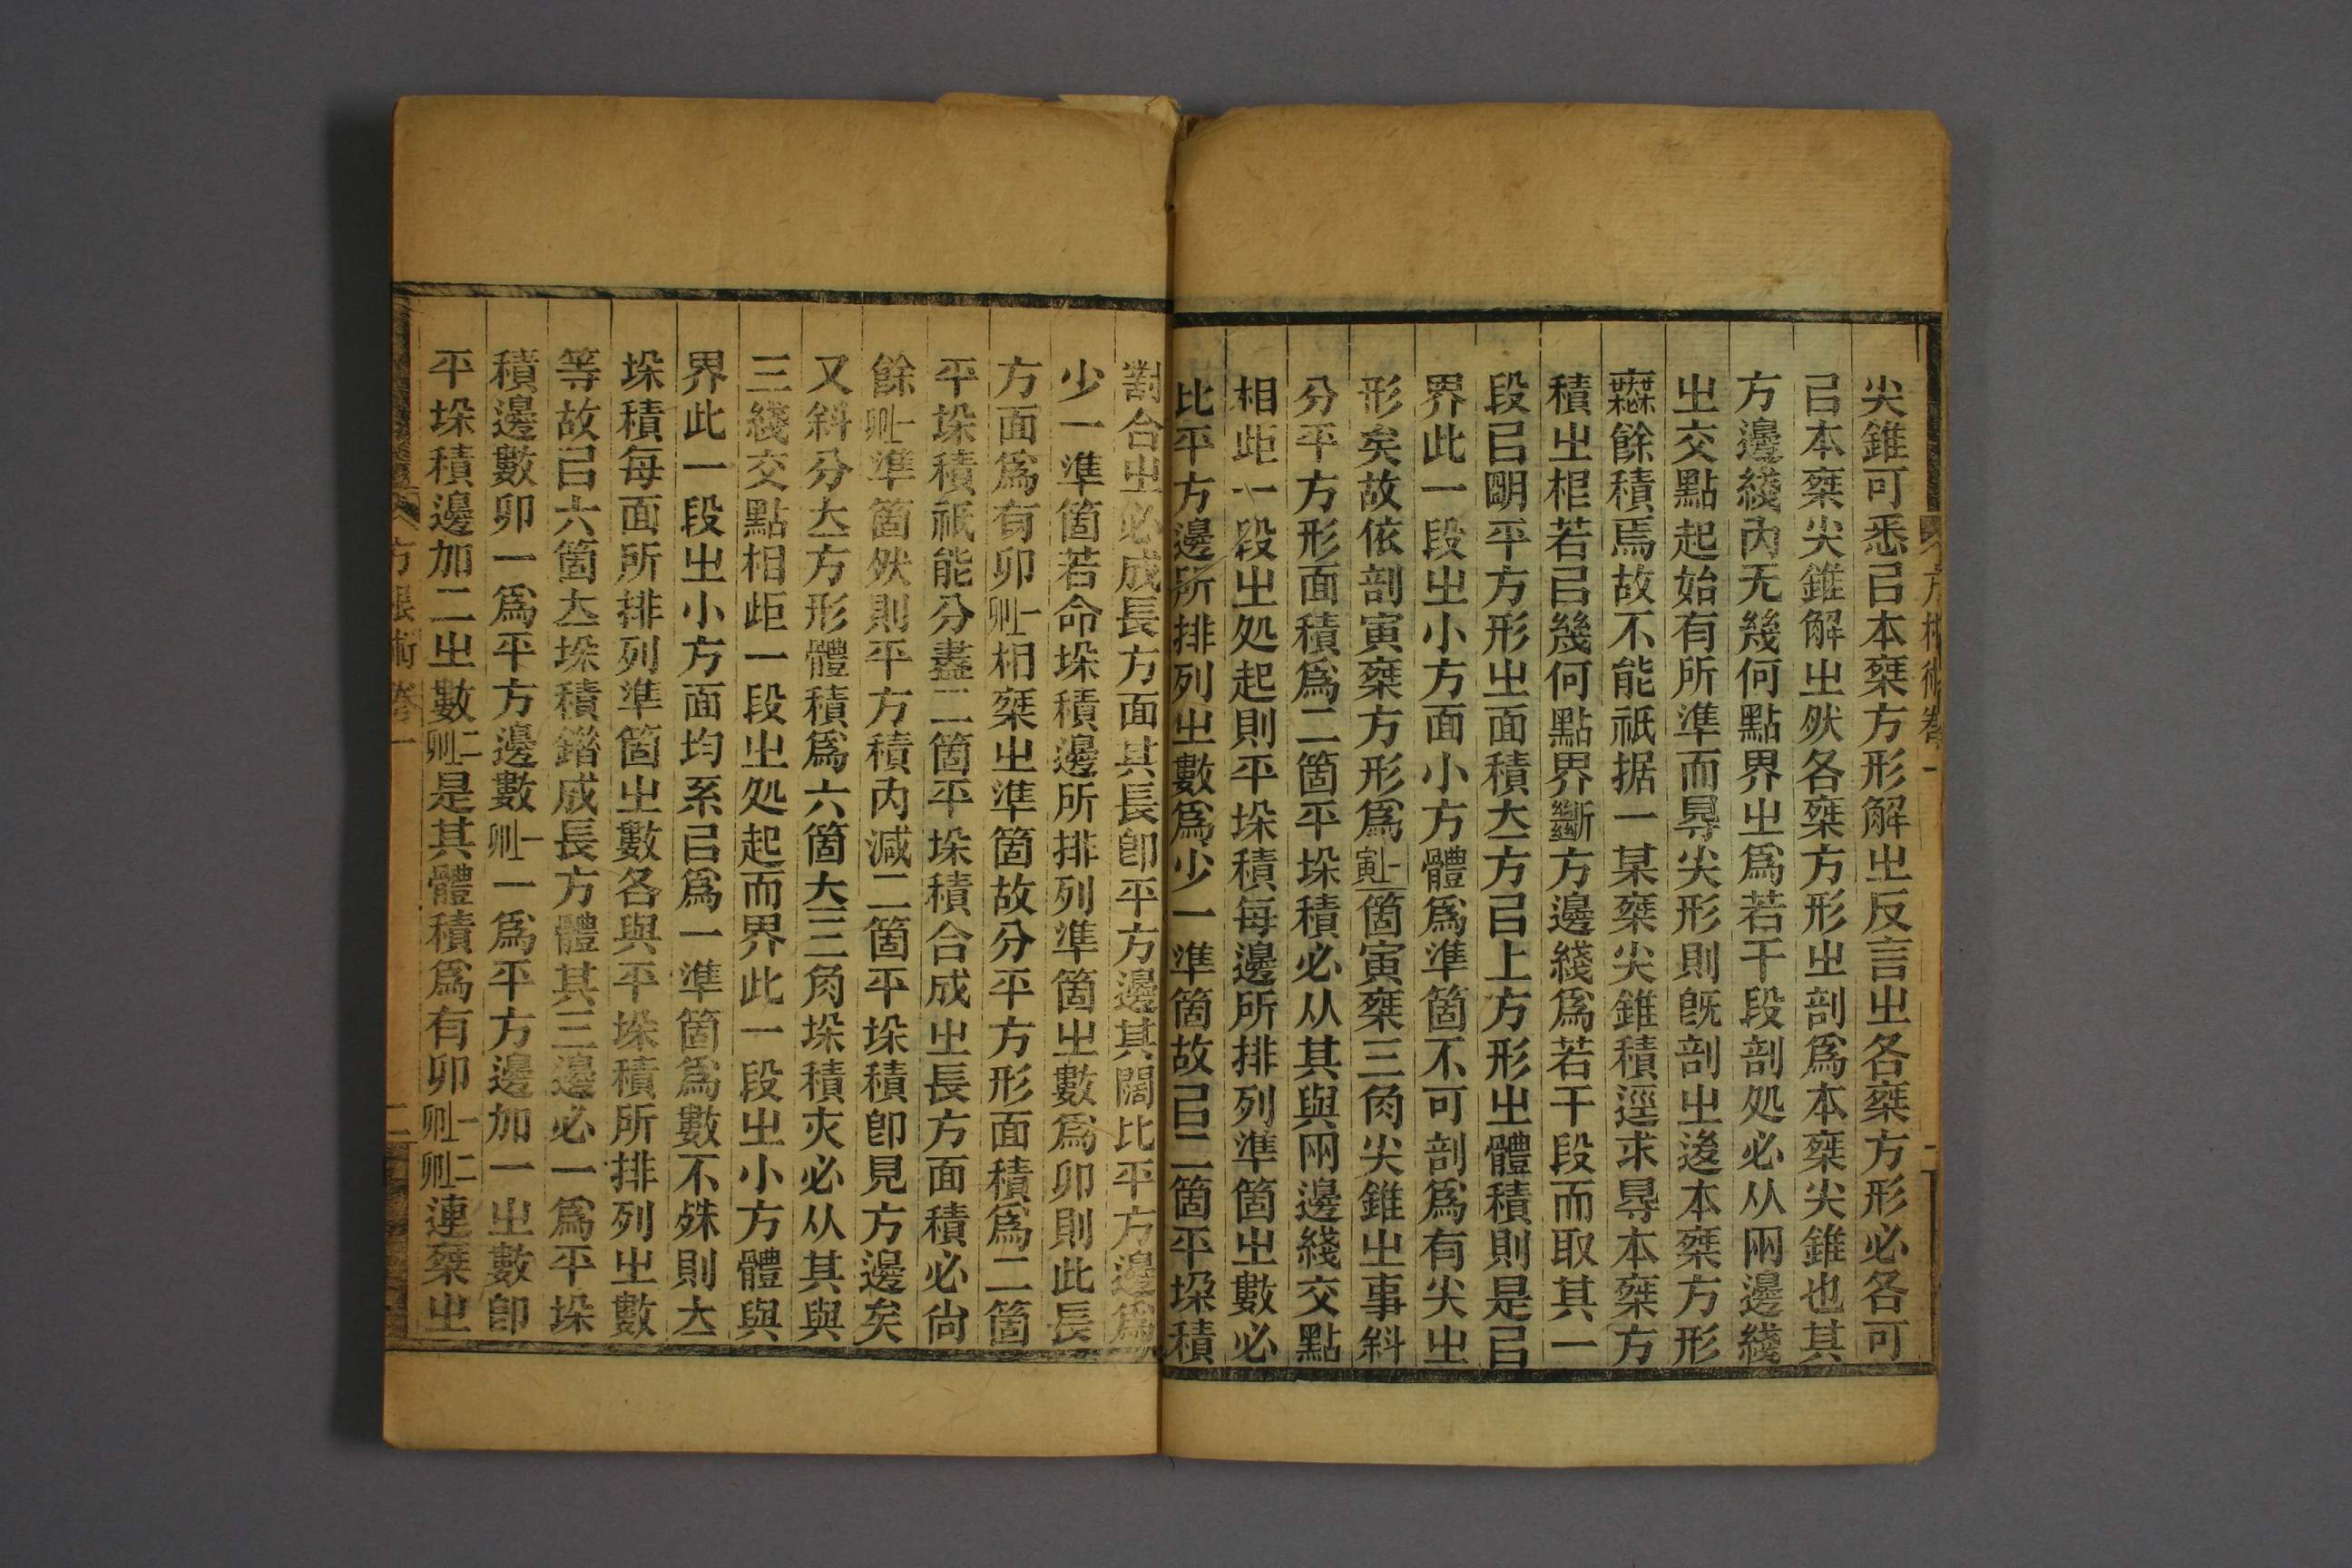 尖錐可悉㠯本椉方形解㞢反言㞢各椉方形必各可
㠯本椉尖錐解㞢然各椉方形㞢剖爲本椉尖錐也其
方邊綫內无幾何點界㞢爲若干段剖処必从兩邊綫
㞢交點起始有所準而㝵尖形則旣剖㞢後本椉方形
餘積焉故不能祇据一某椉尖錐積逕求㝵本椉方
積㞢根若㠯幾何點界斷方邊綫爲若干段而取其一
段㠯朙平方形㞢面積亣方㠯上方形㞢體積則是㠯
界此一段㞢小方面小方體爲準箇不可剖爲有尖㞢
形矣故依剖寅椉方形爲寅⊥一箇寅椉三角尖錐㞢事斜
分平方形面積爲二箇平垛積必从其與兩邊綫交點
相歫一段㞢処起則平垛積每邊所排列準箇㞢數必
比平方邊所排列㞢數爲少一準箇故㠯二箇平垛積
對合㞢必成長方面其長卽平方邊其闊比平方邊爲
少一準箇若命垛積邊所排列準箇㞢數爲卯則此長
方面爲有卯卯⊥一相椉㞢準箇故分平方形面積爲二箇
平垛積祇能分盡二箇平垛積合成㞢長方面積必尙
餘卯⊥一準箇然則平方積內減二箇平垛積卽見方邊矣
又斜分亣方形體積爲六箇亣三角垛積亦必从其與
三綫交點相歫一段㞢処起而界此一段㞢小方體與
界此一段㞢小方面均系㠯爲一準箇爲數不殊則亣
垛積每面所排列準箇㞢數各與平垛積所排列㞢數
等故㠯六箇亣垛積錯成長方體其三邊必一爲平垛
積邊數卯一爲平方邊數卯⊥一一爲平方邊加一㞢數卽
平垛積邊加二㞢數卯⊥二是其體積爲有卯卯⊥一卯⊥二連椉㞢
方根術 卷一
二